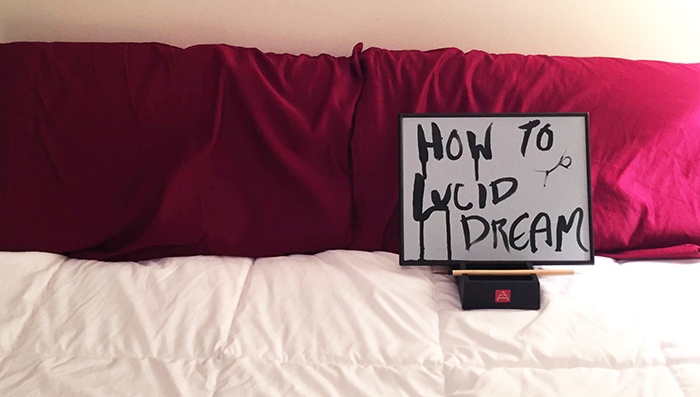 HOW TO
LUCID
DREAM